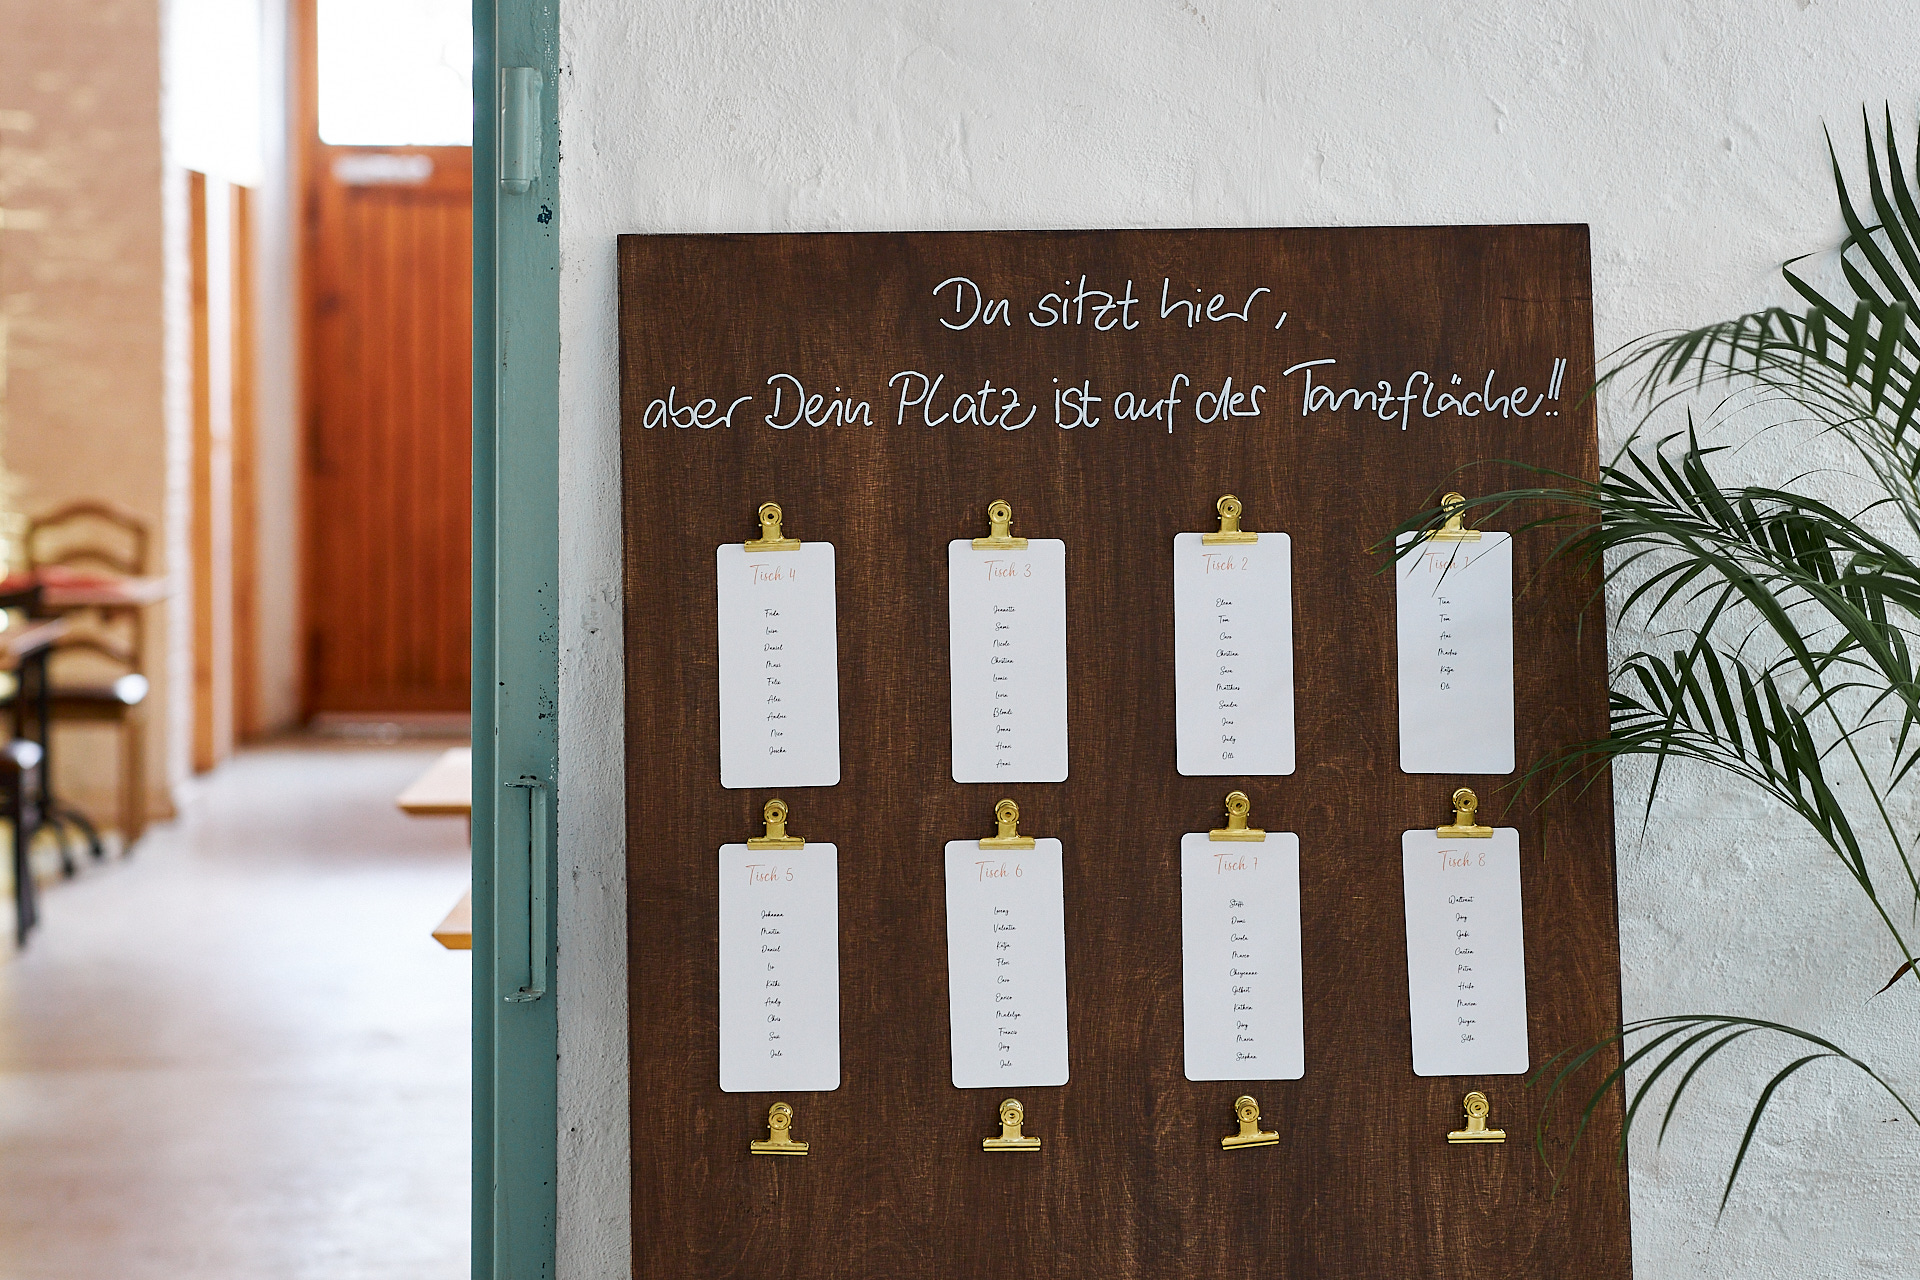 Du sitzt hier,
aber Dein Platz ist auf der Tanzfläche!!
Tisch 4
Frida
Luisa
Daniel
Maxi
Felix
Alex
Andrea
Nico
Jascha
Tisch 3
Jeanette
Sami
Nicole
Christian
Leonie
Levin
Blondi
Jonas
Henri
Anni
Tisch 2
Elena
Tom
Caro
Christian
Sara
Matthias
Sandra
Jens
July
Olli
Tisch 1
Tina
Tom
Ani
Markus
Katja
Oli
Tisch 5
Johanna
Martin
Daniel
Kathi
Andy
Chris
Susi
Jule
Tisch 6
Lorenz
Valentin
Katja
Flori
Caro
Enrico
Madelyn
Francis
Jörg
Jule
Tisch 7
Steffi
Domi
Carola
Marco
Cheyenne
Gilbert
Kathrin
Jörg
Maria
Stephan
Tisch 8
Waltraut
Jörg
Gabi
Carsten
Petra
Heiko
Marion
Jürgen
Silke